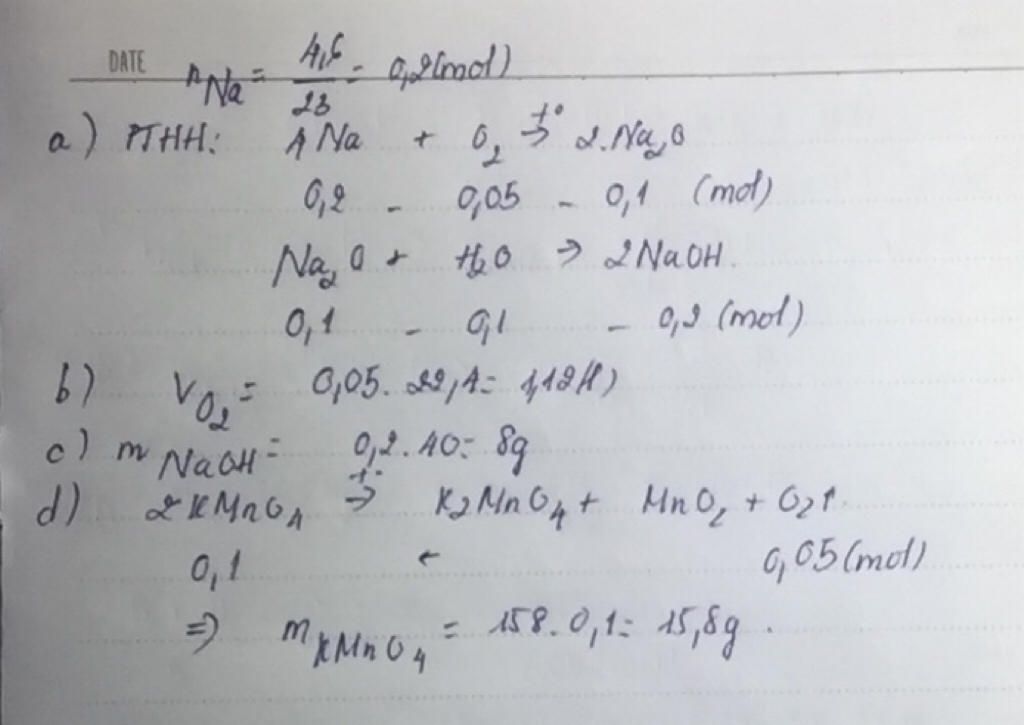 DATE
nNa = 4,6/23 = 0,2(mol)
a) PTHH: 4Na + O₂ t°→ 2.Na₂O
0,2 - 0,05 - 0,1 (mol)
Na₂O + H₂O → 2NaOH.
0,1 - 0,1 - 0,2 (mol)
b) VO₂ = 0,05.22,4 = 1,12(l)
c) mNaOH = 0,2.40 = 8g
d) 2KMnO₄ t°→ K₂MnO₄ + MnO₂ + O₂↑.
0,1 ← 0,05(mol)
=> mKMnO₄ = 158.0,1 = 15,8g.